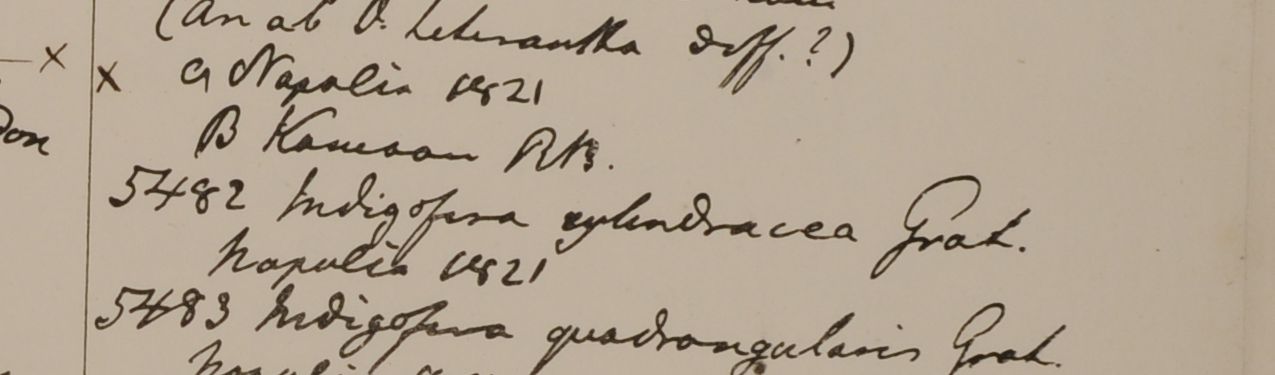 (An ab I. heterantha diff.?)
x
x a Napalia 1821
Don
B Kamaon RB.
5482 Indigofera cylindracea Grah.
Napalia 1821
5483 Indigofera quadrangularis Grah.
Napalia